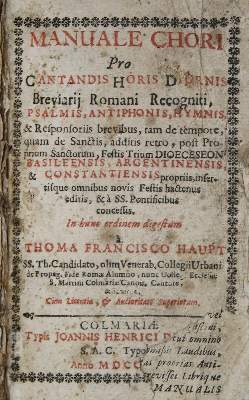 MANUALE CHORI
Pro
CANTANDIS HORIS DIURNIS
Breviarij Romani Recogniti,
PSALMIS, ANTIPHONIS, HYMNIS
& Responsoriis brevibus, tam de tempore,
quam de Sanctis, additis retro, post Pro-
prium Sanctorum, Festis Trium DIOECESEON
BASILEENSIS, ARGENTINENSIS
& CONSTANTIENSIS propriis, inser-
tisque omnibus novis Festis hactenus
editis, & à SS. Pontificibus
concessis.
In hunc ordinem digestum
à
THOMA FRANCISCO HAUPT
SS. Th. Candidato, olim Venerab. Collegii Urbani
de Propag. Fide Romæ Alumno, nunc Ecclesiæ
S. Martini Colmariæ Canon. Cantore,
Cum Licentia, & Authoritate Superiorum.
vel
COLMARIÆ
Typis JOANNIS HENRICI omnino
S. A. C. Typo Laudibus,
Anno MDCC
Librique
MANUALIS